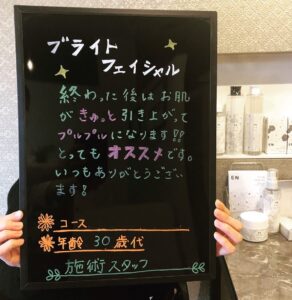 ブライト
フェイシャル
終わった後はお肌
がきゅっと引き上がって
プルプルになります!!
とってもオススメです。
いつもありがとうござい
ます!
コース
年齢 30歳代
施術スタッフ
EN